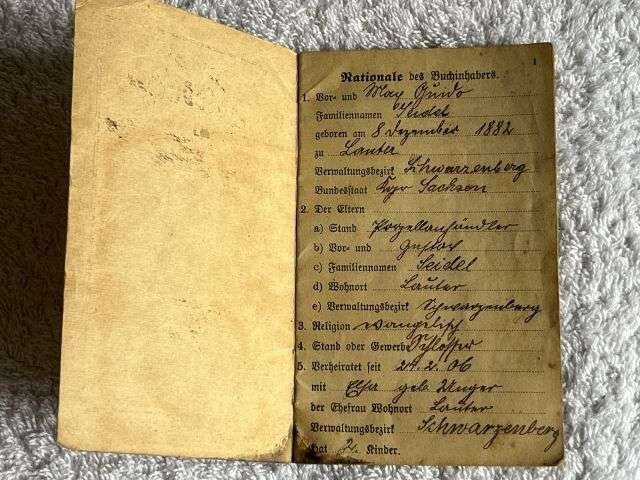 1
Nationale des Buchinhabers.
1. Vor- und Max Guido
Familiennamen Seidel
geboren am 8 Dezember 1882
zu Lauter
Verwaltungsbezirk Schwarzenberg
Bundesstaat Kgr Sachsen
2. Der Eltern
a) Stand Porzellanhändler
b) Vor- und Gustav
c) Familiennamen Seidel
d) Wohnort Lauter
e) Verwaltungsbezirk Schwarzenberg
3. Religion evangelisch
4. Stand oder Gewerbe Schlosser
5. Verheiratet seit 24. 2. 06
mit geb. Unger
der Ehefrau Wohnort Lauter
Verwaltungsbezirk Schwarzenberg
hat 2. Kinder.